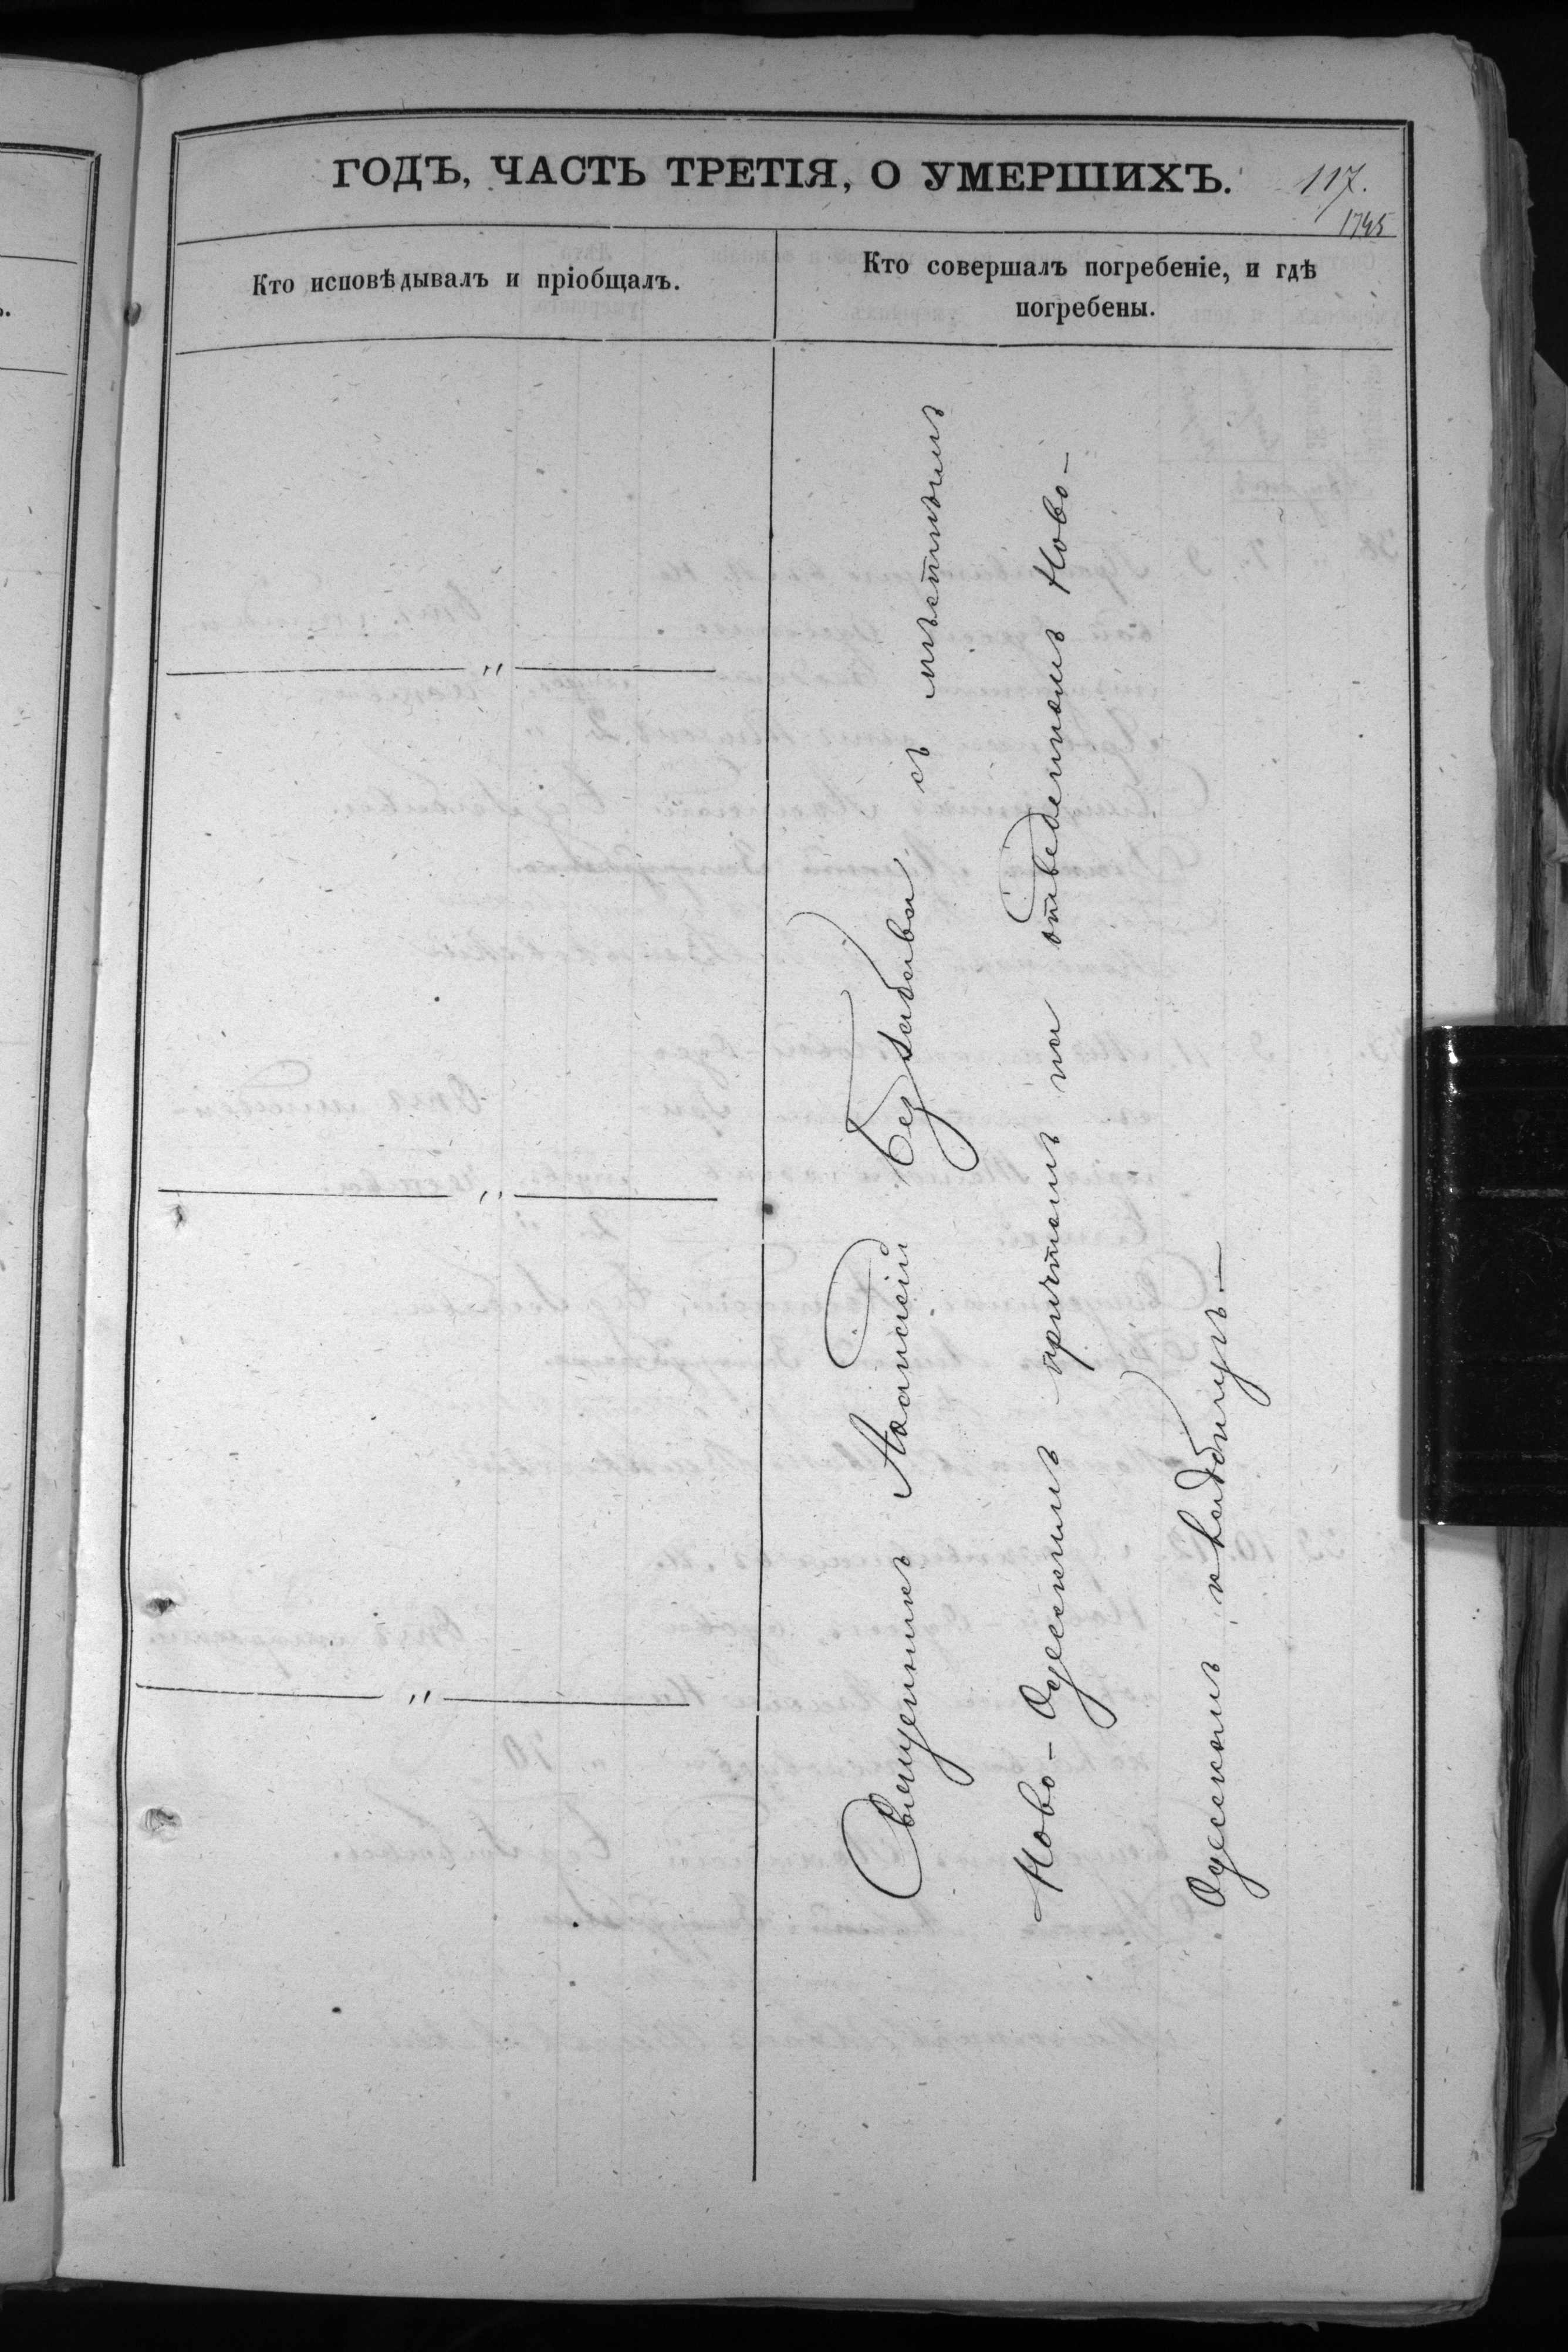 ГОДЪ, ЧАСТЬ ТРЕТІЯ, О УМЕРШИХЪ.
117.
1745
Кто исповѣдывалъ и пріобщалъ.
Кто совершалъ погребеніе, и гдѣ
погребены.
„
„
„
Священникъ Аѳанасій Беззабава съ мѣстнымъ
Ново-Одесскимъ причтомъ на отведенномъ Ново-
Одесскомъ кладбищѣ—